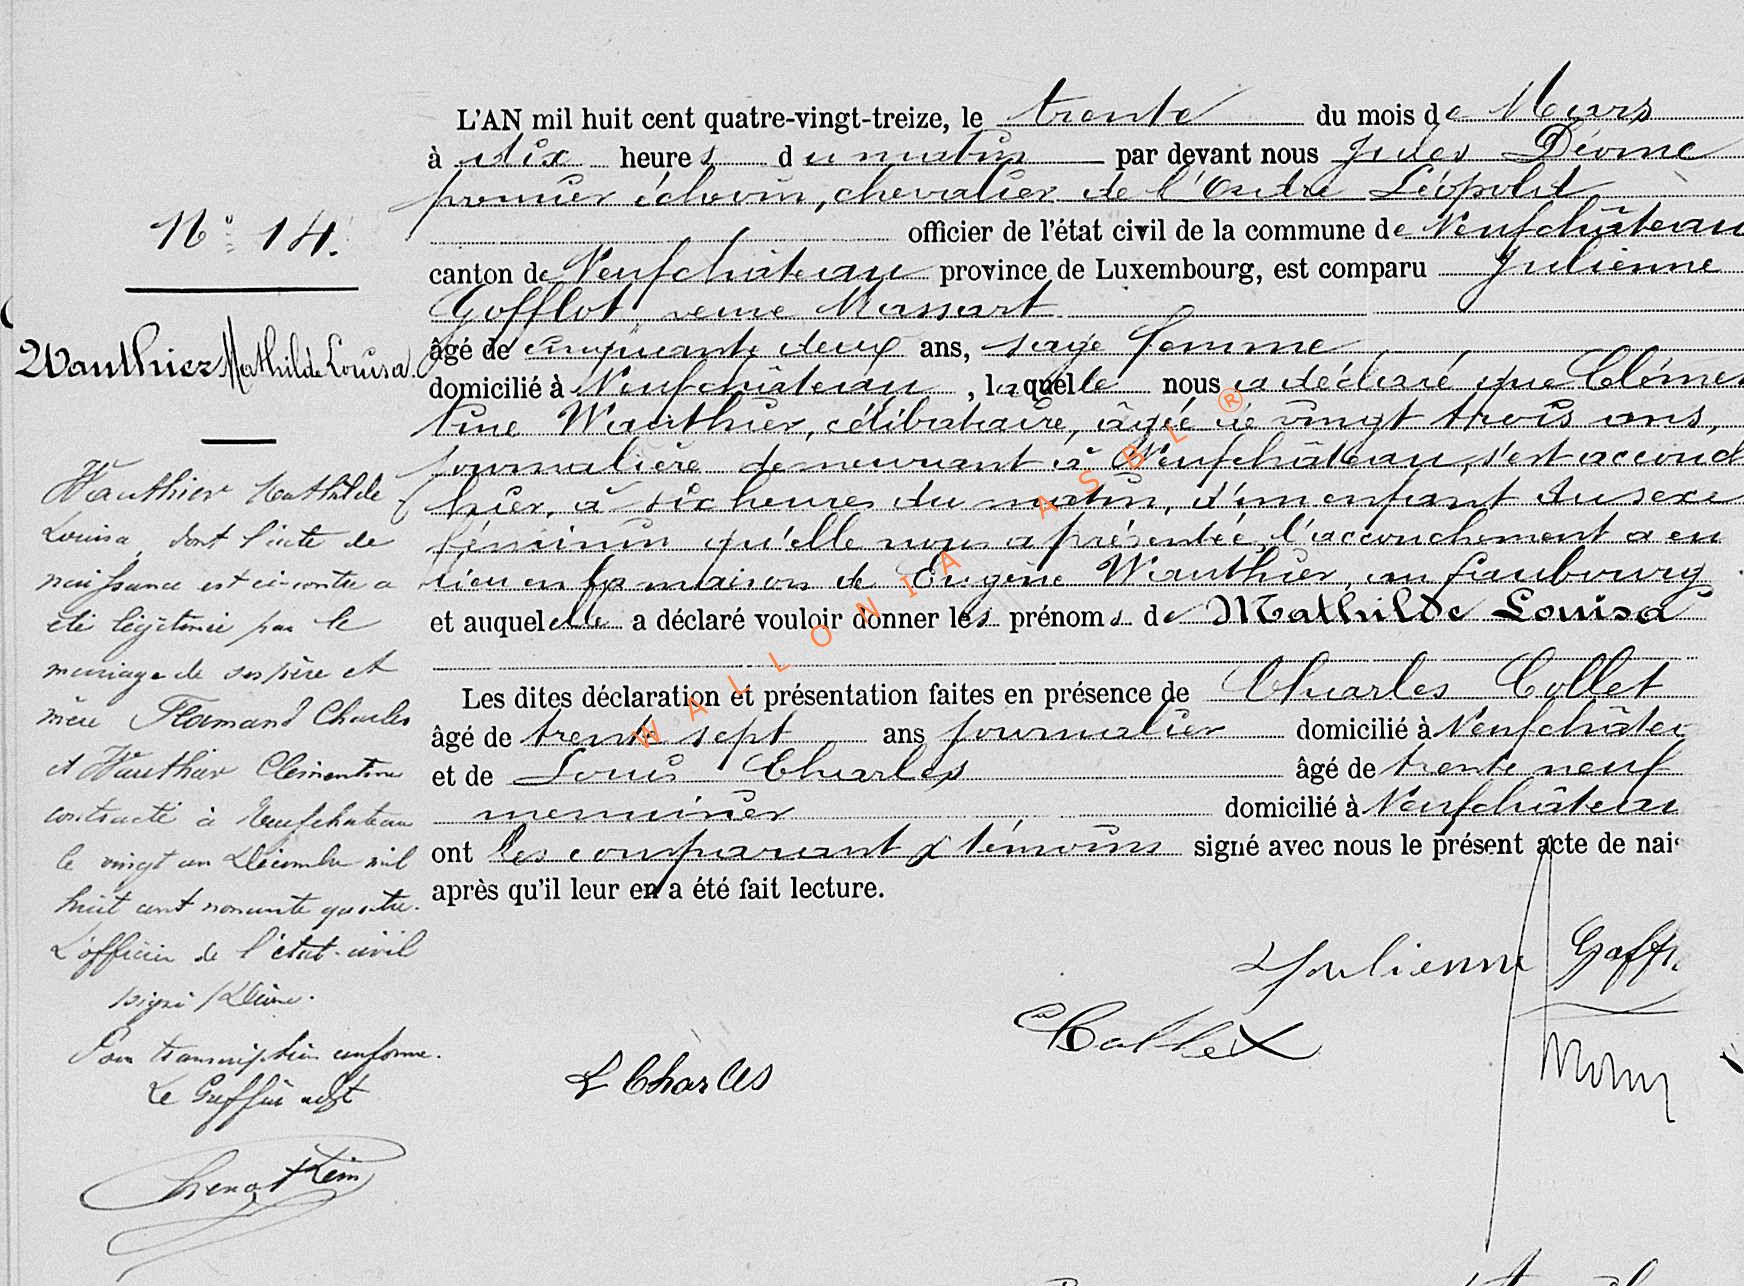 L'AN mil huit cent quatre-vingt-treize, le trente du mois de Mars
à dix heures du matin par devant nous Jules
premier échevin, chevalier de l'Ordre Léopold
officier de l'état civil de la commune de Neufchâteau
canton de Neufchâteau province de Luxembourg, est comparu Julienne
Gofflot, veuve Massart
âgé de cinquante deux ans, sage femme
domicilié à Neufchâteau, laquelle nous a déclaré que Clémen
tine Wauthier, célibataire, âgée de vingt trois ans,
journalière demeurant à Neufchâteau, s'est accouch
hier, à six heures du matin, d'un enfant du sexe
féminin qu'elle nous a présentée, l'accouchement a eu
lieu en la maison de Eugène Wauthier, au faubourg
et auquelelle a déclaré vouloir donner les prénoms de Mathilde Louisa
Les dites déclaration et présentation faites en présence de Charles Collet
âgé de trente sept ans journalier domicilié à Neufchâtea
et de Louis Charles âgé de trente neuf
menuisier domicilié à Neufchâteau
ont les comparant & témoins signé avec nous le présent acte de nais
après qu'il leur en a été fait lecture.
Julienne Goffl
Collet
L Charles
N° 14.
Wauthier Mathilde Louisa.
Wauthier Mathilde
Louisa, dont l'acte de
naissance est ci-contre a
été légitimée par le
mariage de ses père et
mère Flamand Charles
et Wauthier Clémentine
contracté à Neufchateau
le vingt un Décembre mil
huit cent nonante quatre.
L'officier de l'état-civil
signé
Pour transcription conforme.
Le Greffier adjt
WALLONIA ASBL ®